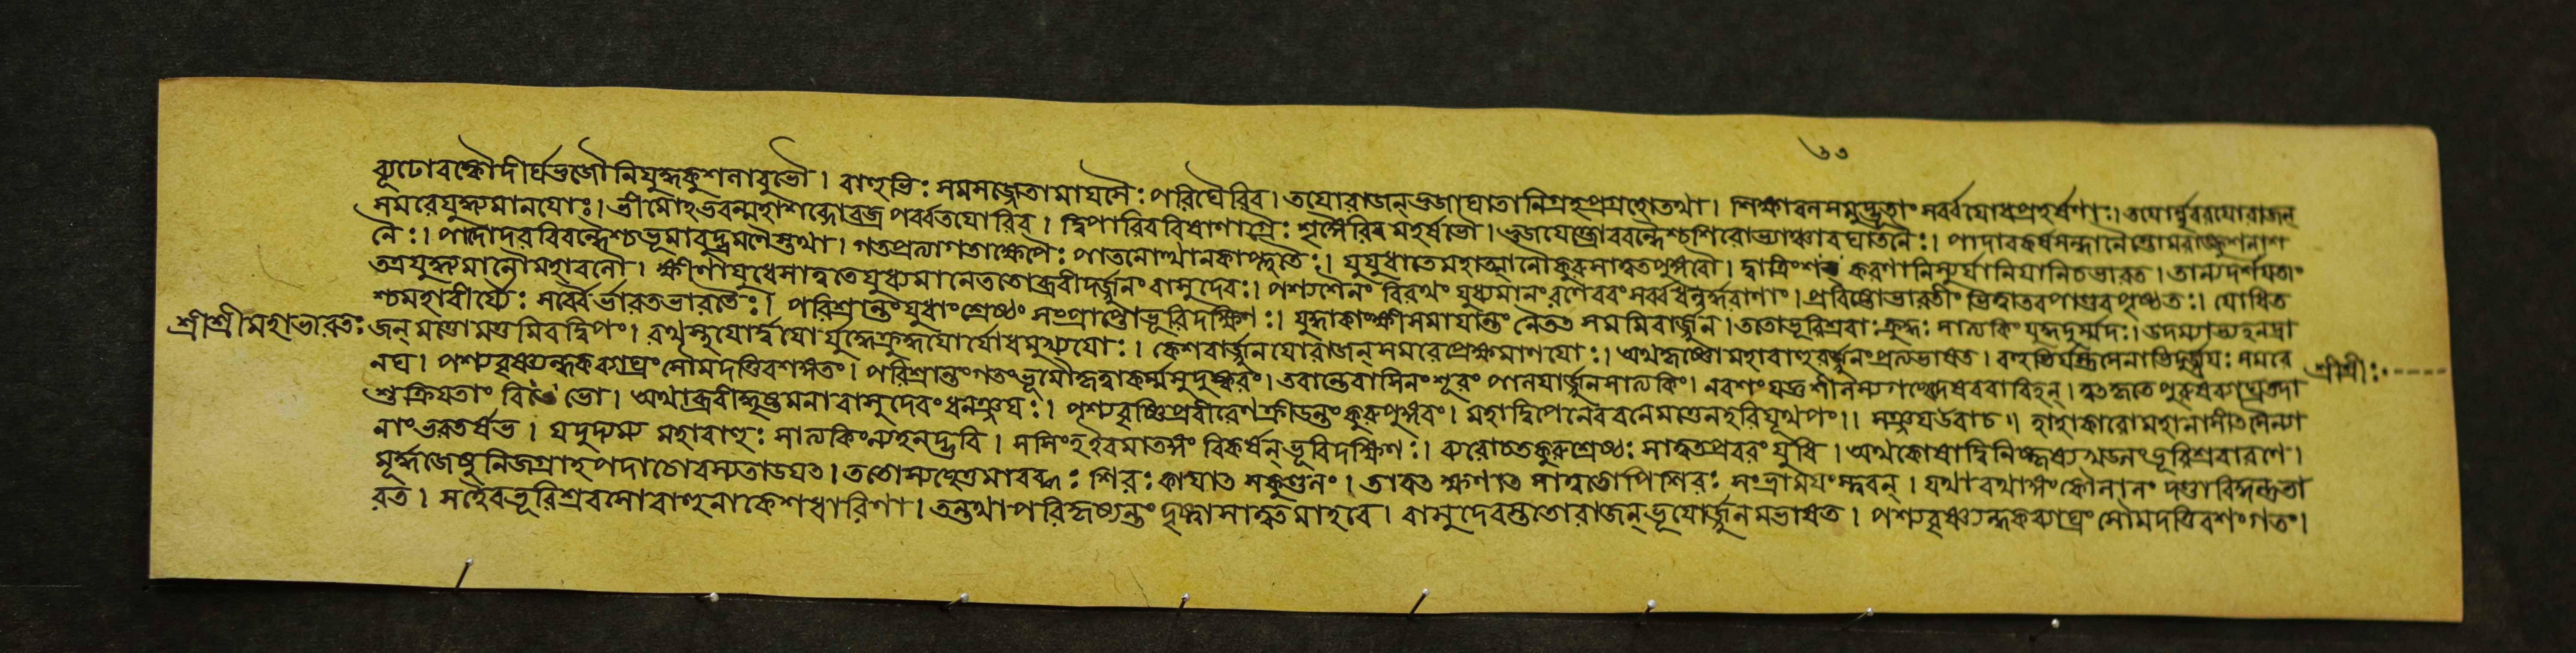 ৬৩
ব্যূঢোরস্কৌ দীর্ঘভুজৌ নিযুদ্ধকুশলাবুভৌ । বাহুভিঃ সমসজ্জেতামাযসৈঃ পরিঘৈরিব । তযোরাজন্ ভুজাঘাতানিগ্রহপ্রগ্রহৌতথা । শিক্ষাবলসমুদ্ভূতাঃ সর্ব্বযোধপ্রহর্ষণাঃ । তযোর্নৃবরযোরাজন্
সমরেযুদ্ধ্যমানযোঃ । ভীমোঽভবন্মহাশব্দোবজ্রপর্ব্বতযোরিব । দ্বিপাবিববিষাণাগ্রৈঃ শৃঙ্গৈরিবমহর্ষভৌ । ভুজযোক্ত্রাববন্ধৈশ্চশিরোভ্যাঞ্চাবঘাতনৈঃ । পাদাবকর্ষসন্ধানৈস্তোমরাঙ্কুশলাশ
নৈঃ । পাদোদরবিবন্ধৈশ্চভূমাবুদ্ভ্রমণৈস্তথা । গতপ্রত্যাগতাক্ষেপৈঃ পাতনোত্থানকাপ্লুতৈঃ । যুযুধাতেমহাত্মানৌকুরুসাত্বতপুঙ্গবৌ । দ্বাত্রিংশৎ করণানিস্যুর্যানিযানিচভারত । তান্যদর্শযতাং
তত্রযুদ্ধ্যমানৌমহাবলৌ । ক্ষীণাযুধেসাত্বতেযুধ্যমানেততোব্রবীদর্জ্জুনং বাসুদেবঃ । পশ্যস্বৈনং বিরথং যুধ্যমানংরণেবরংসর্ব্বধনুর্দ্ধরাণাং । প্রবিষ্টোভারতীং ভিত্ত্বাতবপাণ্ডবপৃষ্ঠতঃ । যোধিত
শ্চমহাবীর্য্যৈঃ সর্ব্বৈর্ভারতভারতৈঃ । পরিশ্রান্তংযুধাংশ্রেষ্ঠং সংপ্রাপ্তোভূরিদক্ষিণঃ । যুদ্ধাকাংক্ষীসমাযান্তং নৈতৎ সমমিবার্জ্জুন । ততোভূরিশ্রবাঃ ক্রুদ্ধঃ সাত্যকিং যুদ্ধদুর্ম্মদঃ । উদ্যম্যাভ্যহনদ্রা
শ্রীশ্রীমহাভারতঃ জন্ মত্তোমত্তমিবদ্বিপং । রথস্থযোর্দ্বযোর্যুদ্ধেক্রুদ্ধযোর্যোধমুখ্যযোঃ । কেশবার্জ্জুনযোরাজন্ সমরেপ্রেক্ষমাণযোঃ । অথকৃষ্ণোমহাবাহুরর্জ্জুনংপ্রত্যভাষত ।
নঘ । পশ্যবৃষ্ণ্যন্ধকব্যাঘ্রং সৌমদত্তিবশঙ্গতং । পরিশ্রান্তংগতংভূমৌকৃত্বাকর্ম্মসুদুষ্করং । তবান্তেবাসিনংশূরং পালযার্জ্জুনসাত্যকিং ।
শ্রীশ্রীঃ
শুক্রিযতাং বিভো । অথাব্রবীদ্ধৃষ্টমনা বাসুদেবংধনঞ্জযঃ । পশ্যবৃষ্ণিপ্রবীরেণক্রীডন্তংকুরুপুঙ্গবং । মহাদ্বিপেনেববনেমত্তেনহরিযূথপং ॥ সঞ্জযউবাচ ॥ হাহাকারোমহানাসীৎসৈন্যা
নাংভরতর্ষভ । যদুদ্যম্য মহাবাহুঃ সাত্যকিংন্যহনদ্ভুবি । সসিংহইবমাতঙ্গং বিকর্ষন্ ভূরিদক্ষিণঃ । ব্যরোচতকুরুশ্রেষ্ঠঃ সাত্বতপ্রবরংযুধি । অথকোষাদ্বিনিষ্কৃষ্যখড্গংভূরিশ্রবারণে ।
মূর্দ্ধজেষুনিজগ্রাহপদাচোরস্যতাডযৎ । ততোস্যছেত্তুমারব্ধঃ শিরঃ কাযাৎ সকুণ্ডলং । তাবৎ ক্ষণাৎ সাত্বতোপিশিরঃ সংভ্রামযংস্ত্বরন্ । যথারথাঙ্গংকৌলালং দণ্ডাবিদ্ধন্তুভা
রত । সহৈবভূরিশ্রবসোবাহুনাকেশধারিণা । তন্তথাপরিকৃষ্যন্তংদৃষ্ট্বাসাত্বতমাহবে । বাসুদেবস্ততোরাজন্ ভূযোর্জ্জুনমভাষত । পশ্যবৃষ্ণ্যন্ধকব্যাঘ্রং সৌমদত্তিবশংগতং ।